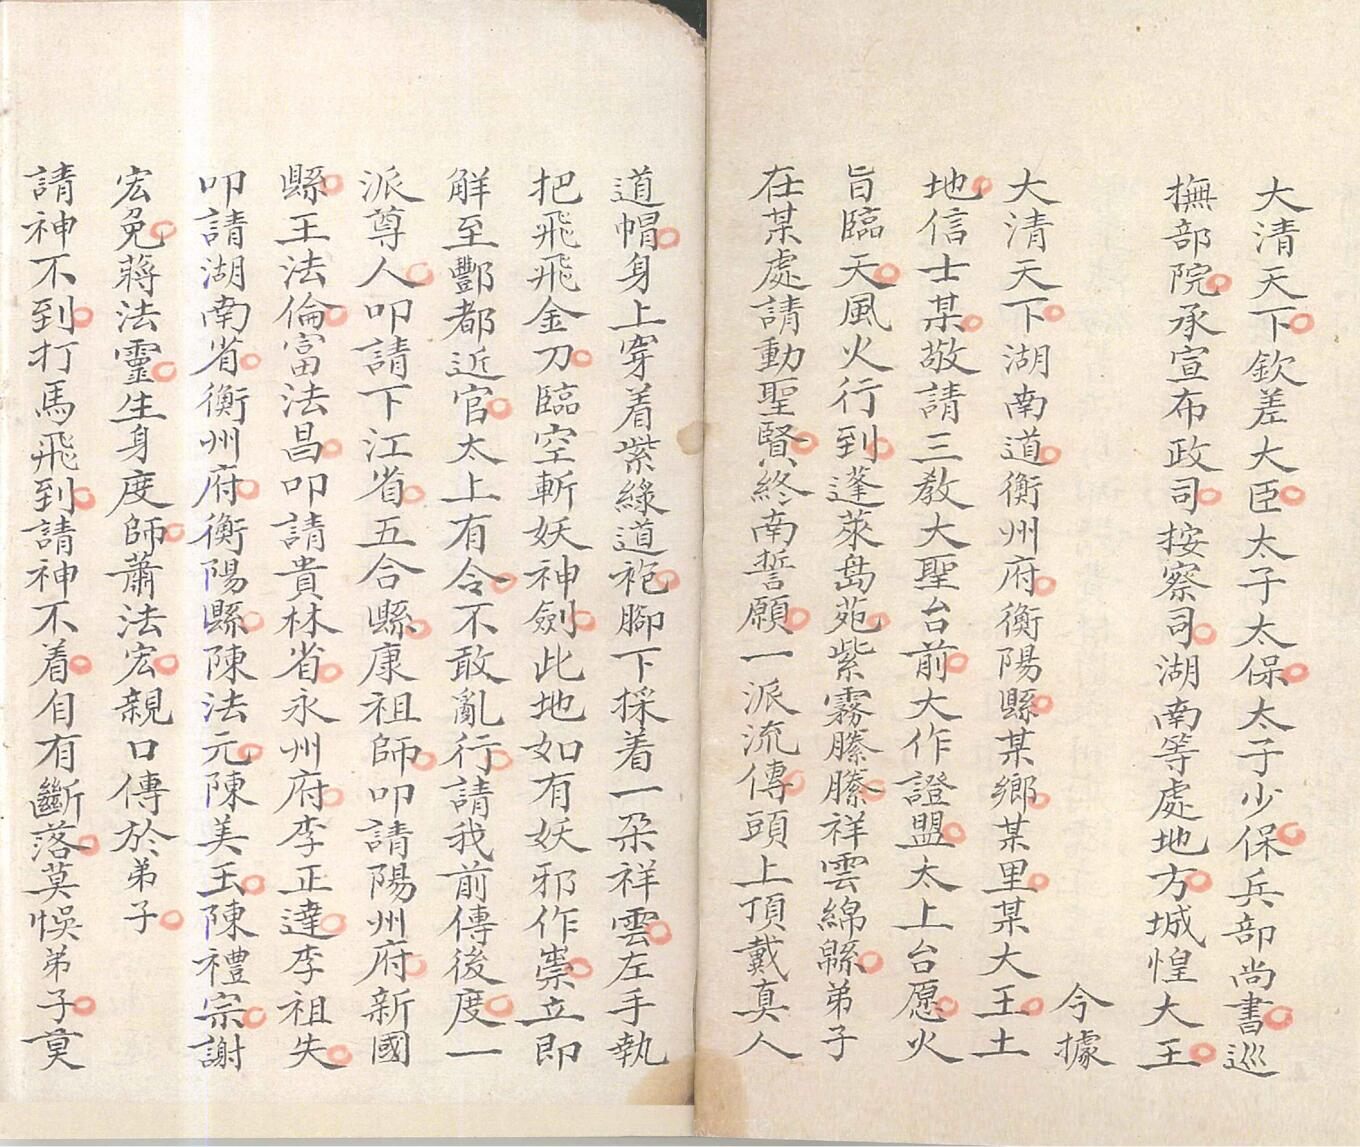 大清天下欽差大臣太子太保太子少保兵部尚書巡
撫部院承宣布政司按察司湖南等處地方城惶大王
今據
大清天下湖南道衡州府衡陽縣某鄉某里某大王土
地信士某敬請三教大聖台前大作證盟太上台愿火
旨臨天風火行到蓬萊島苑紫霧縢縢祥雲綿緜弟子
在某處請動聖賢終南誓願一派流傳頭上頂戴真人
道帽身上穿着紫綠道袍腳下採着一朶祥雲左手執
把飛飛金刀臨空斬妖神劍此地如有妖邪作祟立即
解至酆都近官太上有令不敢亂行請我前傳後度一
派尊人叩請下江省五合縣康祖師叩請陽州府新國
縣王法倫富法昌叩請貴林省永州府李正達李祖失
叩請湖南省衡州府衡陽縣陳法元陳美玉陳禮宗謝
宏免蔣法靈生身度師蕭法宏親口傳於弟子
請神不到打馬飛到請神不着自有斷落莫悞弟子莫